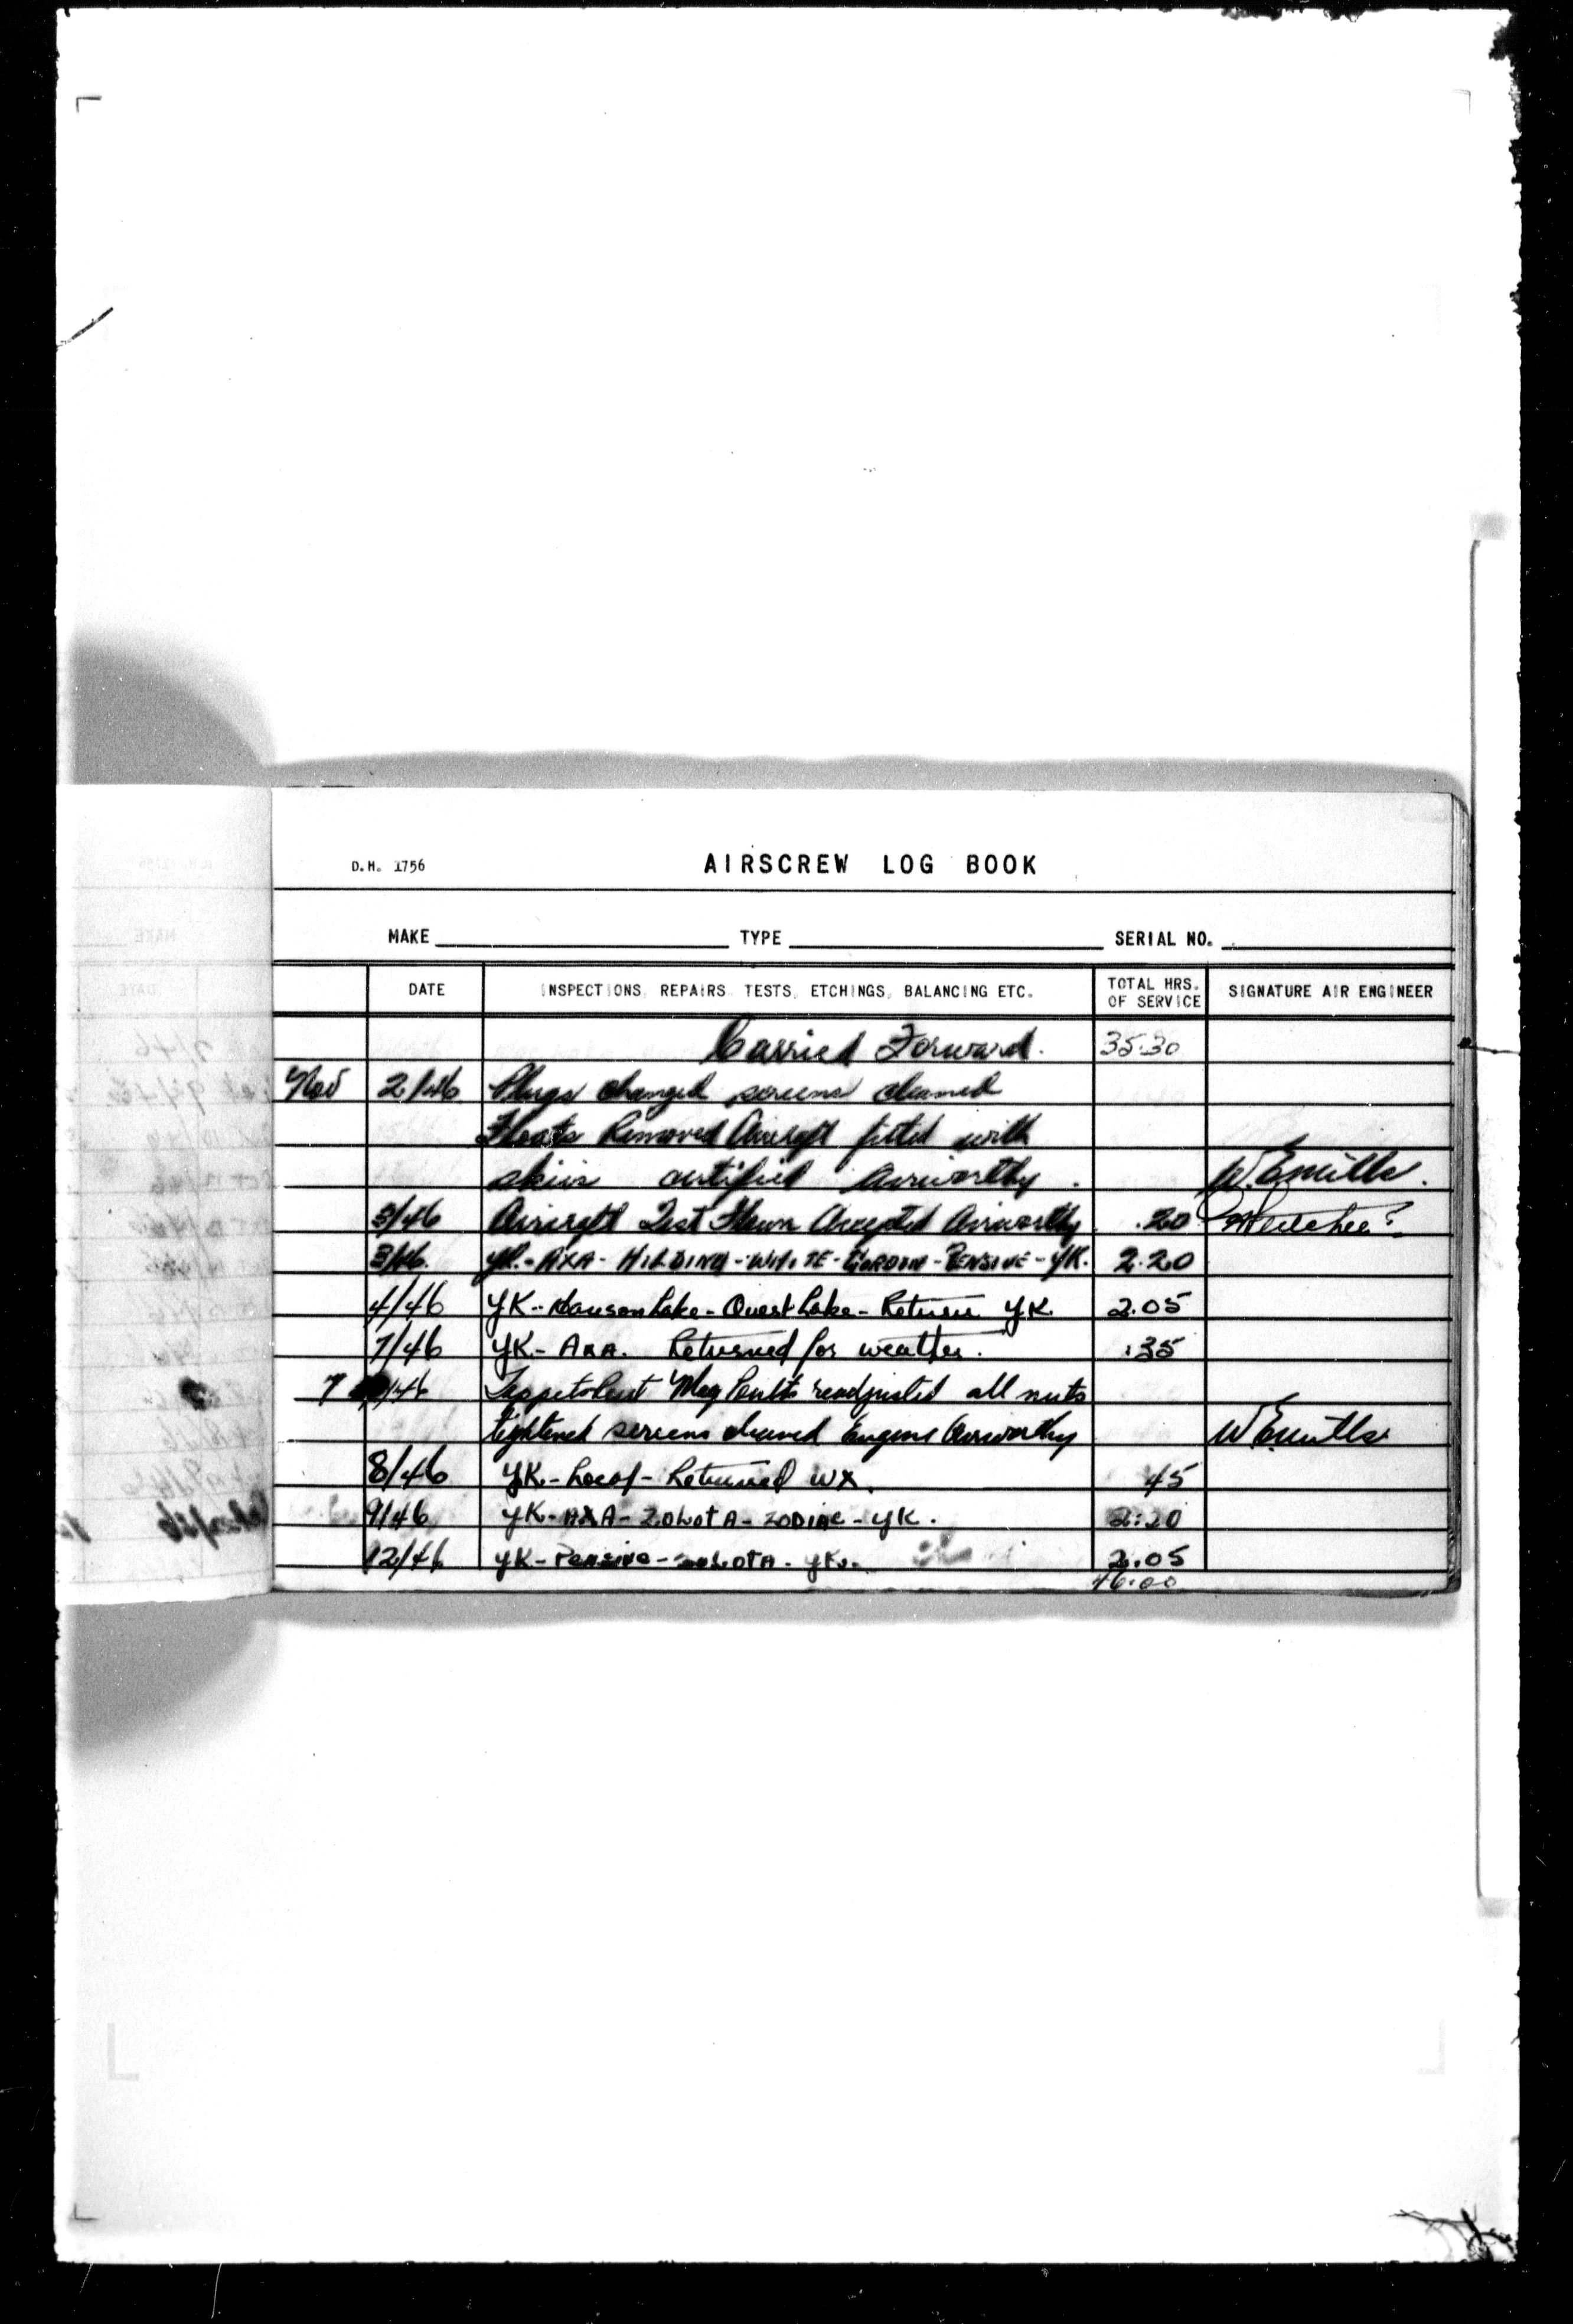 D.H. 1756 AIRSCREW LOG BOOK
MAKE TYPE SERIAL NO.
DATE INSPECTIONS, REPAIRS, TESTS, ETCHINGS, BALANCING ETC. TOTAL HRS. OF SERVICE SIGNATURE AIR ENGINEER
Carried Forward. 35.30
Nov 2/46 Plugs changed screens cleaned
Floats Removed Aircraft fitted with
skiis certified airworthy. W.E. Mills.
3/46 Aircraft Test Flown Accepted Airworthy .20
3/46. YK.-AXA-HILDING-WHITE-GORDON-PENSIVE-YK. 2.20
4/46 YK-Lake-Quest Lake-Return YK. 2.05
7/46 YK-AXA. Returned for weather. :35
7 /46 Mag Points readjusted all nuts
tightened screens cleaned Engine Airworthy W.E. Mills
8/46 YK-Local-Returned WX. 45
9/46 YK-AXA-ZOLOTA-ZODIAC-YK. 2:20
12/46 YK-Pensive-ZOLOTA-YK. 2.05
46:00